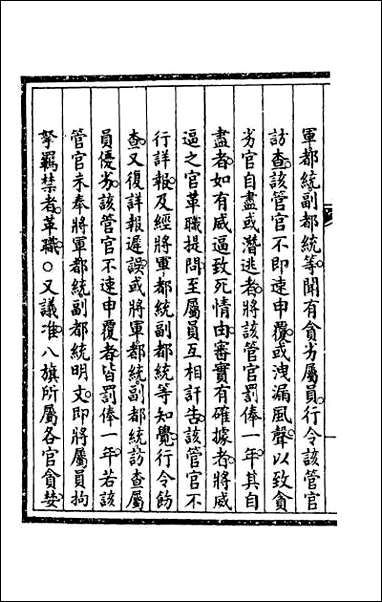 軍都統副都統等聞有貪劣屬員行令該管官
訪查該管官不即速申覆或洩漏風聲以致貪
劣官自盡或潛逃者將該管官罰俸一年其自
盡者如有威逼致死情由審實有確據者將威
逼之官革職提問至屬員互相訐告該管官不
行詳報及經將軍都統副都統等知覺行令飭
查又復詳報遲誤或將軍都統副都統訪查屬
員優劣該管官不速申覆者皆罰俸一年若該
管官未奉將軍都統副都統明文即將屬員拘
拏羈禁者革職○又議准八旗所屬各官貪婪